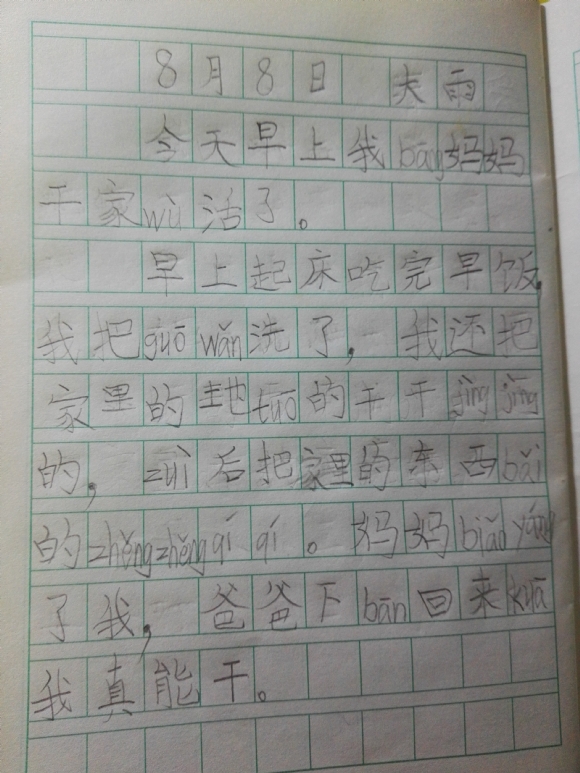 8月8日 大雨
今天早上我bāng妈妈
干家wù活了。
早上起床吃完早饭,
我把guō wǎn洗了,我还把
家里的地tuō的干干jìng jìng
的,zuì后把家里的东西bǎi
的zhěngzhěngqí qí。妈妈biǎo yáng
了我,爸爸下bān回来kuā
我真能干。